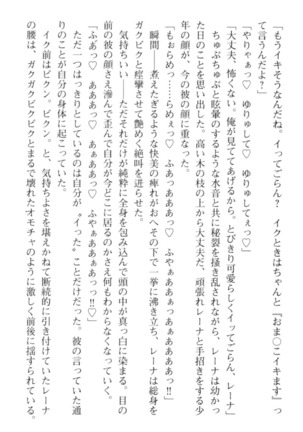 「もうイキそうなんだね。イってごらん？　イクときはちゃんと『おま○こイキます』っ
て言うんだよ？」
「やりゃぁっ♡　ゆりゅして♡　ゆりゅしてぇっ♡」
「大丈夫、怖くない。俺が見ててあげるから、とびきり可愛らしくイッてごらん、レーナ」
ちゅぷちゅぷと眩暈のするような水音と共に秘裂を掻き乱されながら、レーナは幼かっ
た日のことを思い出した。高い木の枝の上から大丈夫、頑張れレーナと手招きをする少
年の顔が、今の彼の顔に重なった。
「もぉらめっ……らめぇっ♡　ふあっあああっ♡　ふやぁあああぁあああぁっ!!」
瞬間――煮えたぎるような快美の痺れがおへその下で一挙に沸き立ち、レーナは総身を
ガクビクと痙攣させて艶めく絶叫を迸らせた。
気持ちいい――ただそれだけが純粋に全身を包み込んで頭の中が真っ白に染まる。目の
前の彼の顔さえ滲んで歪んで自分が今どこに居るのかさえ何もわからなくなっていく。
「ふあっ♡　あああっ♡　あぁああっ♡　ふやぁああああっっ!!♡」
ただ一つはっきりとしているのは自分が〝イった〟ことだけだった。彼の言っていた通
りのことが自分の身体に起こっていた。
イク前はビクン。ビクン。と、気持ちよさを堪えかねて断続的に引き付けていたレーナ
の腰は、ガクガクビクビクとまるで壊れたオモチャのように激しく前後に揺すられている。